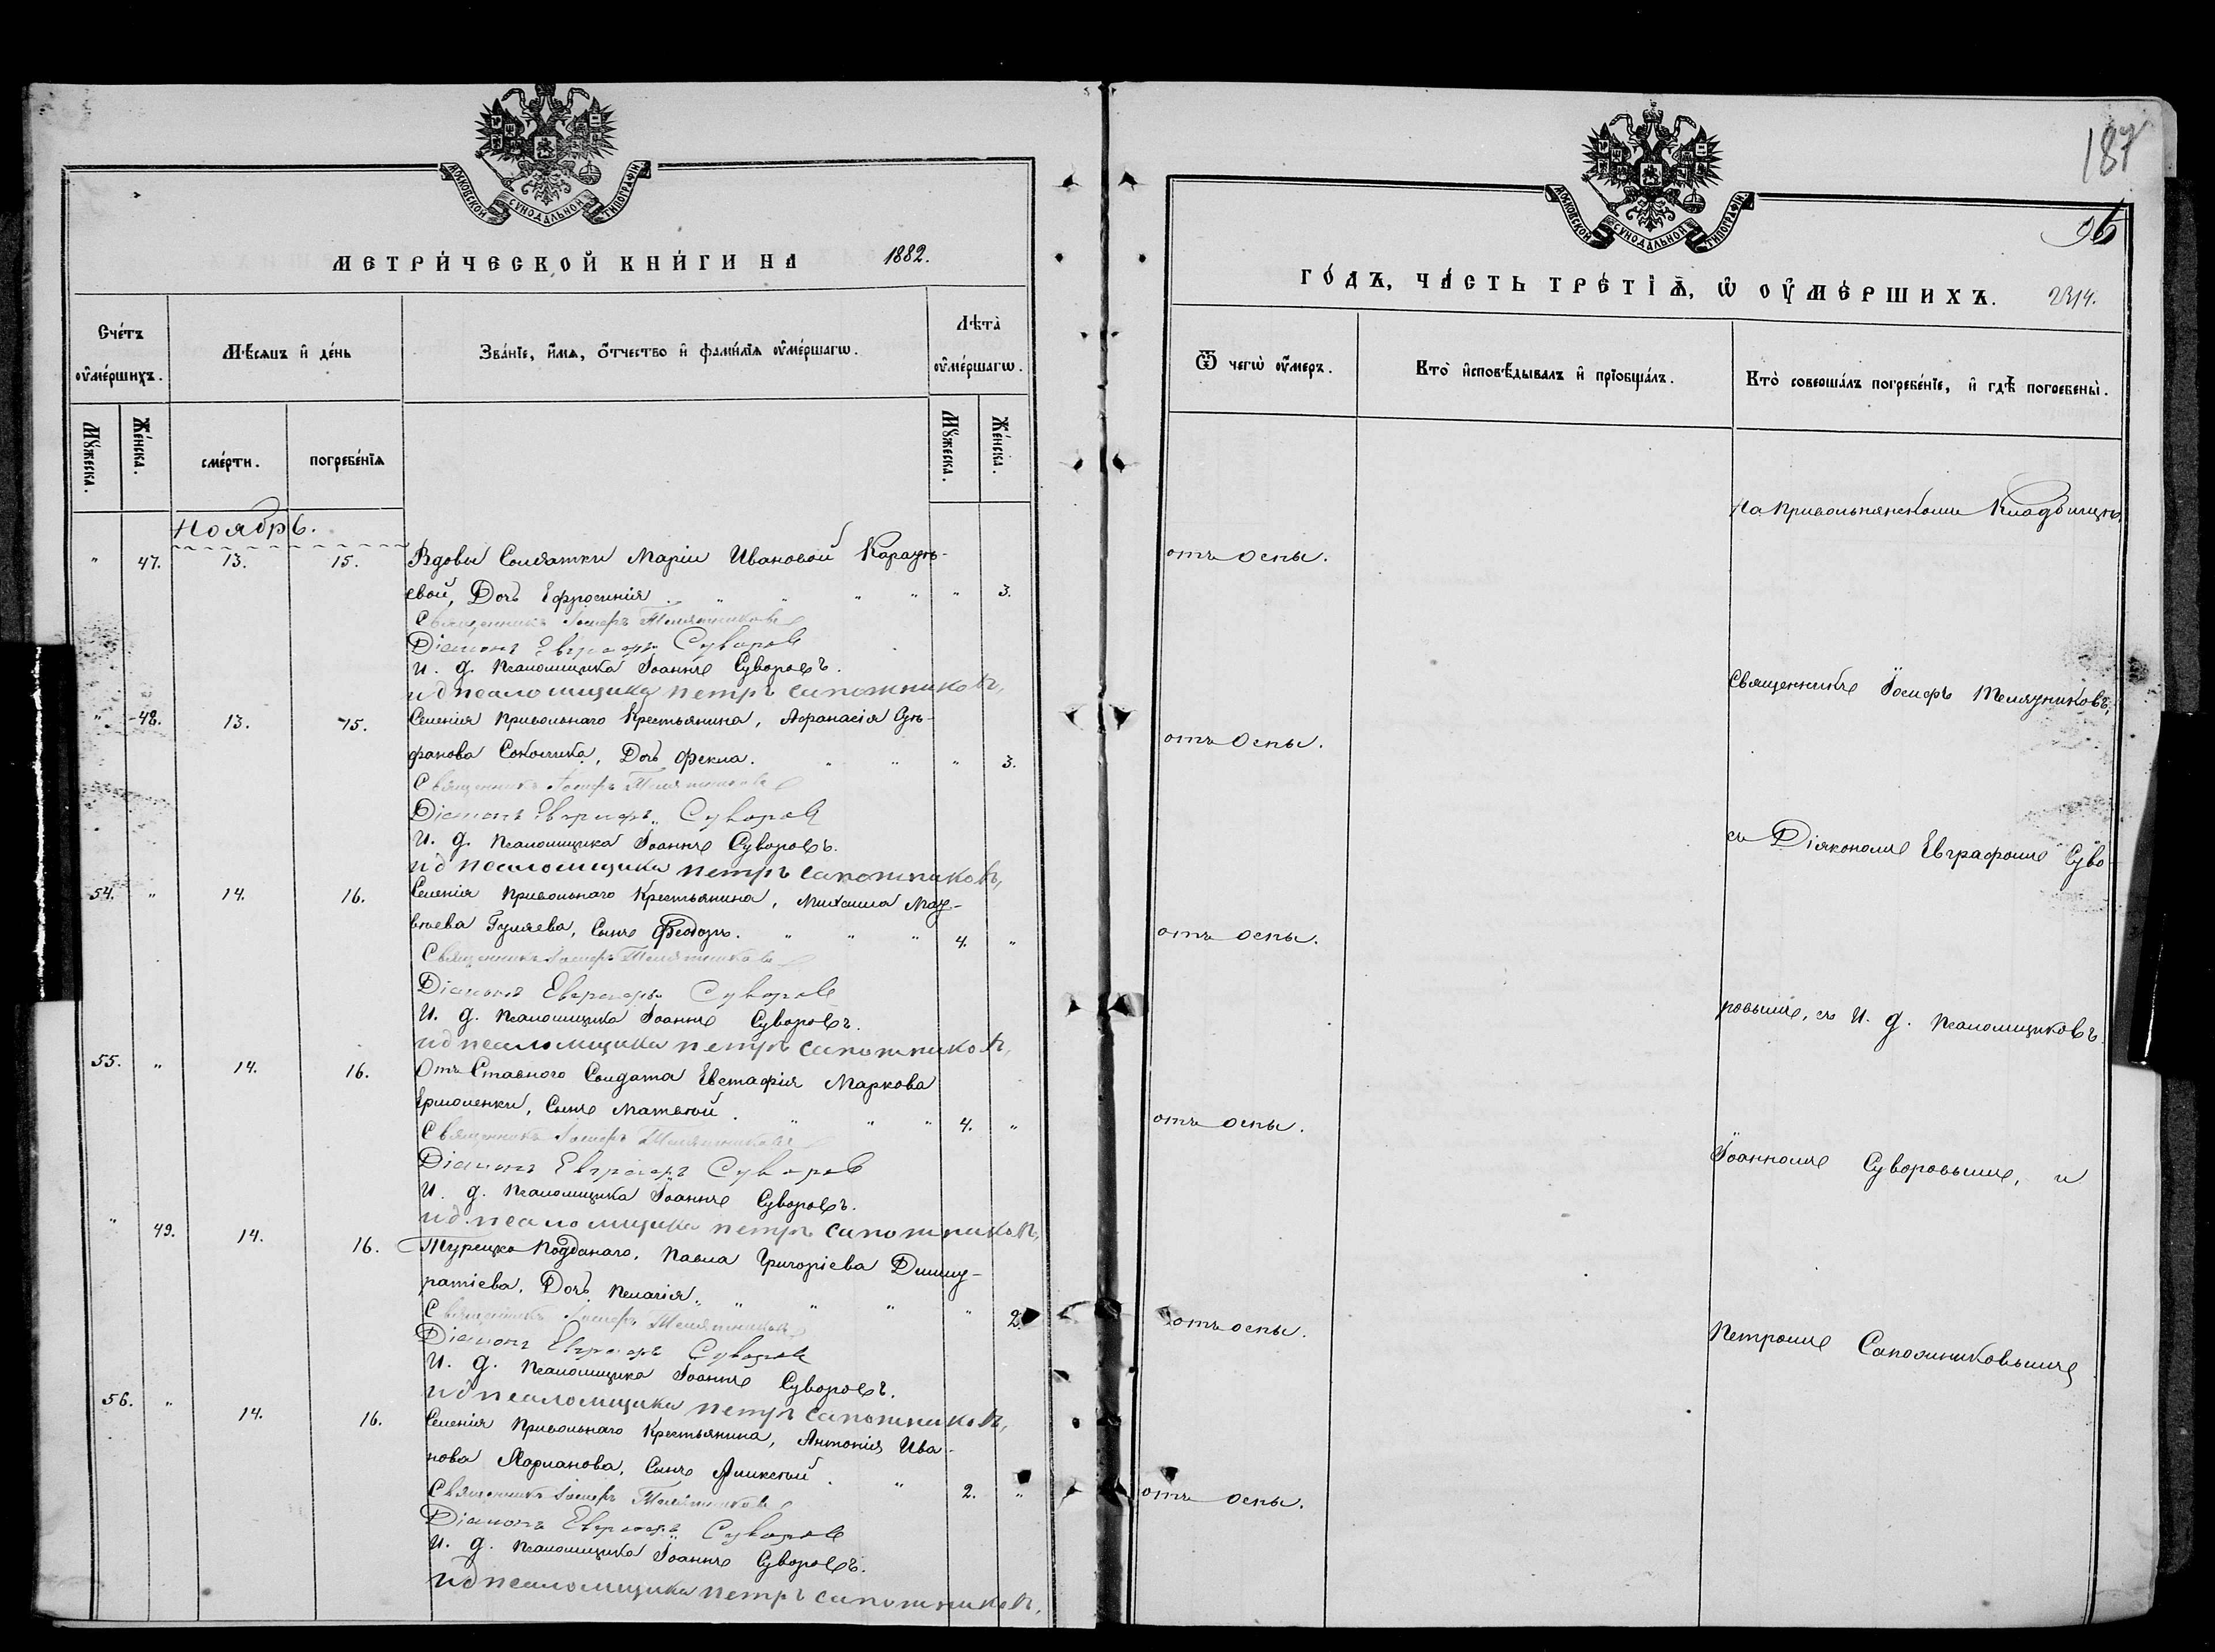 МОСКОВСКОЙ СУНОДАЛЬНОЙ ТИПОГРАФІИ
МЕТРИ́ЧЕСКОЙ КНИ́ГИ НА 1882.
Счéтъ ᲂу҆мéршихъ.
Мѣ́сяцъ и҆ дéнь
Звáнїе, и҆́мѧ, ѻ҆́тчество и҆ фамѝлїѧ ᲂу҆мéршагѡ.
Лѣ́та ᲂу҆мéршагѡ.
Мꙋ́жеска.
Жéнска.
смéрти.
погребéнїѧ
Мꙋ́жеска.
Жéнска.
Ноябрь.
" 47. 13. 15. Вдовы Солдатки Маріи Ивановой Карауль-
евой, Дочь Ефросинія. " " " " " 3.
Священникъ Іосифъ Телятниковъ
Діаконъ Евграфъ Суворовъ
И. д. Псаломщика Іоаннъ Суворовъ.
ид псаломщика петръ сапожниковъ,
" 48. 13. 15. Селенія Привольнаго Крестьянина, Афанасія
Дочь Фекла. " " " 3.
Священникъ Іосифъ Телятниковъ
Діаконъ Евграфъ Суворовъ
И. д. Псаломщика Іоаннъ Суворовъ.
ид псаломщика петръ сапожниковъ,
54. " 14. 16. Селенія Привольнаго Крестьянина, Михаила Мат-
вѣева Гуляева, Сынъ Ѳеодоръ. " " " 4. "
Священникъ Іосифъ Телятниковъ
Діаконъ Евграфъ Суворовъ
И. д. Псаломщика Іоаннъ Суворовъ.
ид псаломщика петръ сапожниковъ,
55. " 14. 16. Отъ Ставного Солдата Евстафія Маркова
Ермоленки, Сынъ Матвѣй. " " " 4. "
Священникъ Іосифъ Телятниковъ
Діаконъ Евграфъ Суворовъ
И. д. Псаломщика Іоаннъ Суворовъ.
ид псаломщика петръ сапожниковъ,
" 49. 14. 16. Турецко Подданаго, Павла Григоріева Димит-
ратіева, Дочь Пелагія. " " " " 2.
Священникъ Іосифъ Телятниковъ
Діаконъ Евграфъ Суворовъ
И. д. Псаломщика Іоаннъ Суворовъ.
ид псаломщика петръ сапожниковъ,
56. " 14. 16. Селенія Привольнаго Крестьянина, Антонія Ива-
нова Марианова, Сынъ Алексѣй. " 2. "
Священникъ Іосифъ Телятниковъ
Діаконъ Евграфъ Суворовъ
И. д. Псаломщика Іоаннъ Суворовъ.
ид псаломщика петръ сапожниковъ,
187
96
МОСКОВСКОЙ СУНОДАЛЬНОЙ ТИПОГРАФІИ
ГО́ДЪ, ЧА́СТЬ ТРЕ́ТІѦ, Ѡ҆ ОУ҆МЕ́РШИХЪ. 2314.
Ѿ чегѡ̀ ᲂу҆́меръ.
Ктò и҆сповѣ́дывалъ и҆ прїобщáлъ.
Ктò совершáлъ погребéнїе, и҆ гдѣ̀ погребены̀.
На Привольнянскомъ Кладбищѣ
отъ оспы.
Священникъ Іосифъ Телятниковъ,
отъ оспы.
съ Діякономъ Евграфомъ Суво-
отъ оспы.
ровымъ, съ И. д. Псаломщиковъ
отъ оспы.
Іоанномъ Суворовымъ, и
отъ оспы.
Петромъ Сапожниковымъ
отъ оспы.